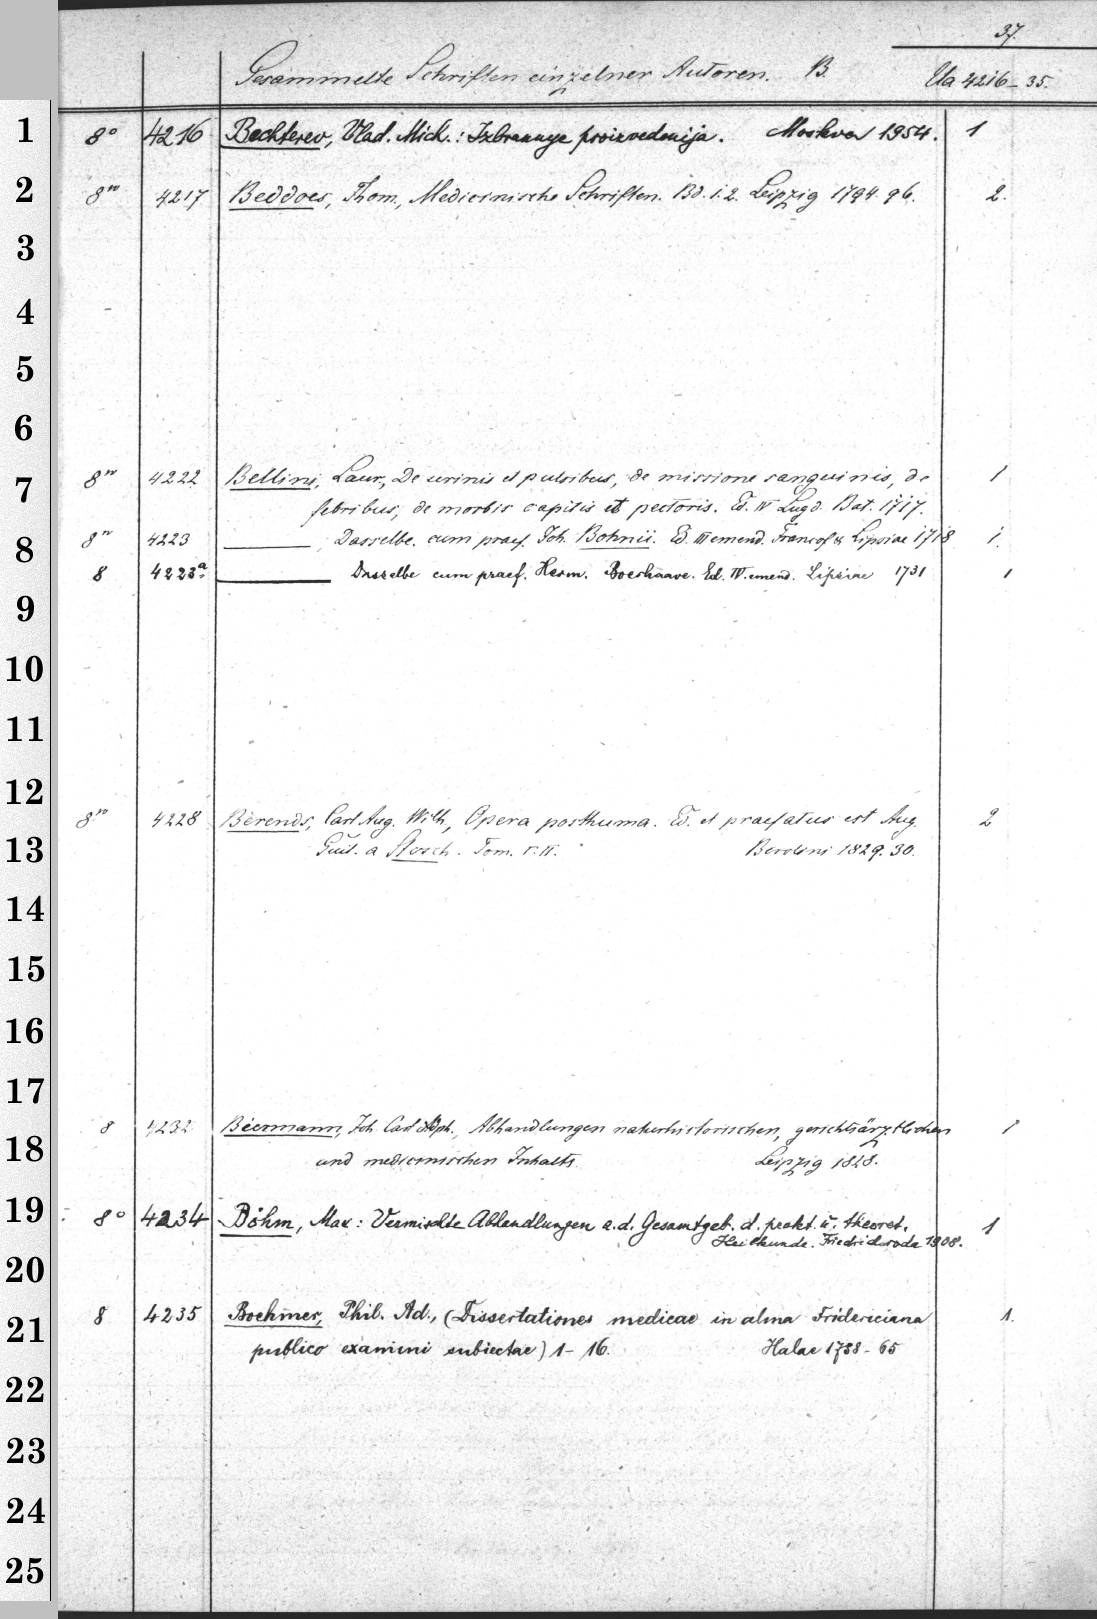 37.
Gesammelte Schriften einzelner Autoren. B. Ua 4216-35.
1 8° 4216 Bechterev, Vlad. Mich.: Izbrannye proizvedenija. Moskva 1954. 1
2 8vo 4217 Beddoes, Thom., Medicinische Schriften. Bd. 1. 2. Leipzig 1794. 96. 2.
3
4
5
6
7 8vo 4222 Bellini, Laur., De urinis et pulsibus, de missione sanguinis, de 1
febribus, de morbis capitis et pectoris. Ed. IV Lugd. Bat. 1717.
8 8vo 4223 ——— , Dasselbe. cum praef. Joh. Bohnii. Ed. III emend. Francof & Lipsiae 1718 1.
8 4223a. ——— Dasselbe cum praef. Herm. Boerhaave. Ed. IV. emend. Lipsiae 1731 1
9
10
11
12
8vo 4228 Berends, Carl Aug. Wilh., Opera posthuma. Ed. et praefatus est Aug. 2
13 Guil. a Stosch. Tom. I. II. Berolini 1829. 30.
14
15
16
17
8 4232 Biermann, Joh. Carl Abhandlungen naturhistorischen, gerichtsärztlichen 1
18 und medicinischen Inhalts. Leipzig 1828.
19 8° 4234 Böhm, Max: Vermischte Abhandlungen a. d. Gesamtgeb. d. prakt. u. theoret. 1
Heilkunde. Friedrichroda 1908.
20
8 4235 Boehmer, Phil. Ad., (Dissertationes medicae in alma Fridericiana 1.
21 publico examini subiectae) 1-16. Halae 1738-65
22
23
24
25